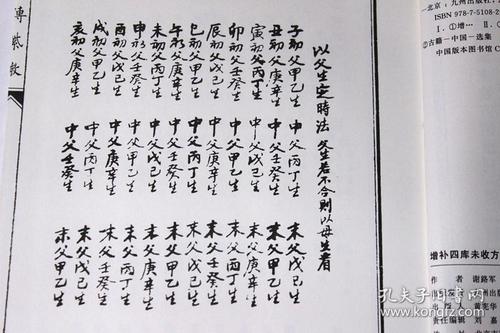 以父生定時法 父生若不合則以母生看
子初父甲乙生 中父丙丁生 末父戊己生
丑初父庚辛生 中父壬癸生 末父甲乙生
寅初父丙丁生 中父戊己生 末父庚辛生
卯初父壬癸生 中父甲乙生 末父丙丁生
辰初父戊己生 中父庚辛生 末父壬癸生
巳初父甲乙生 中父丙丁生 末父戊己生
午初父庚辛生 中父壬癸生 末父甲乙生
未初父丙丁生 中父戊己生 末父庚辛生
申初父壬癸生 中父甲乙生 末父丙丁生
酉初父戊己生 中父庚辛生 末父壬癸生
戌初父甲乙生 中父丙丁生 末父戊己生
亥初父庚辛生 中父壬癸生 末父甲乙生
—北京：九州出版社，
ISBN 978-7-5108-2
Ⅰ.①增… Ⅱ.
②古籍－中国－选集
中国版本图书馆C
增补四库未收方
作 者 谢路军
出版人 黄宪华
责任编辑 刘嘉
孔夫子旧书网